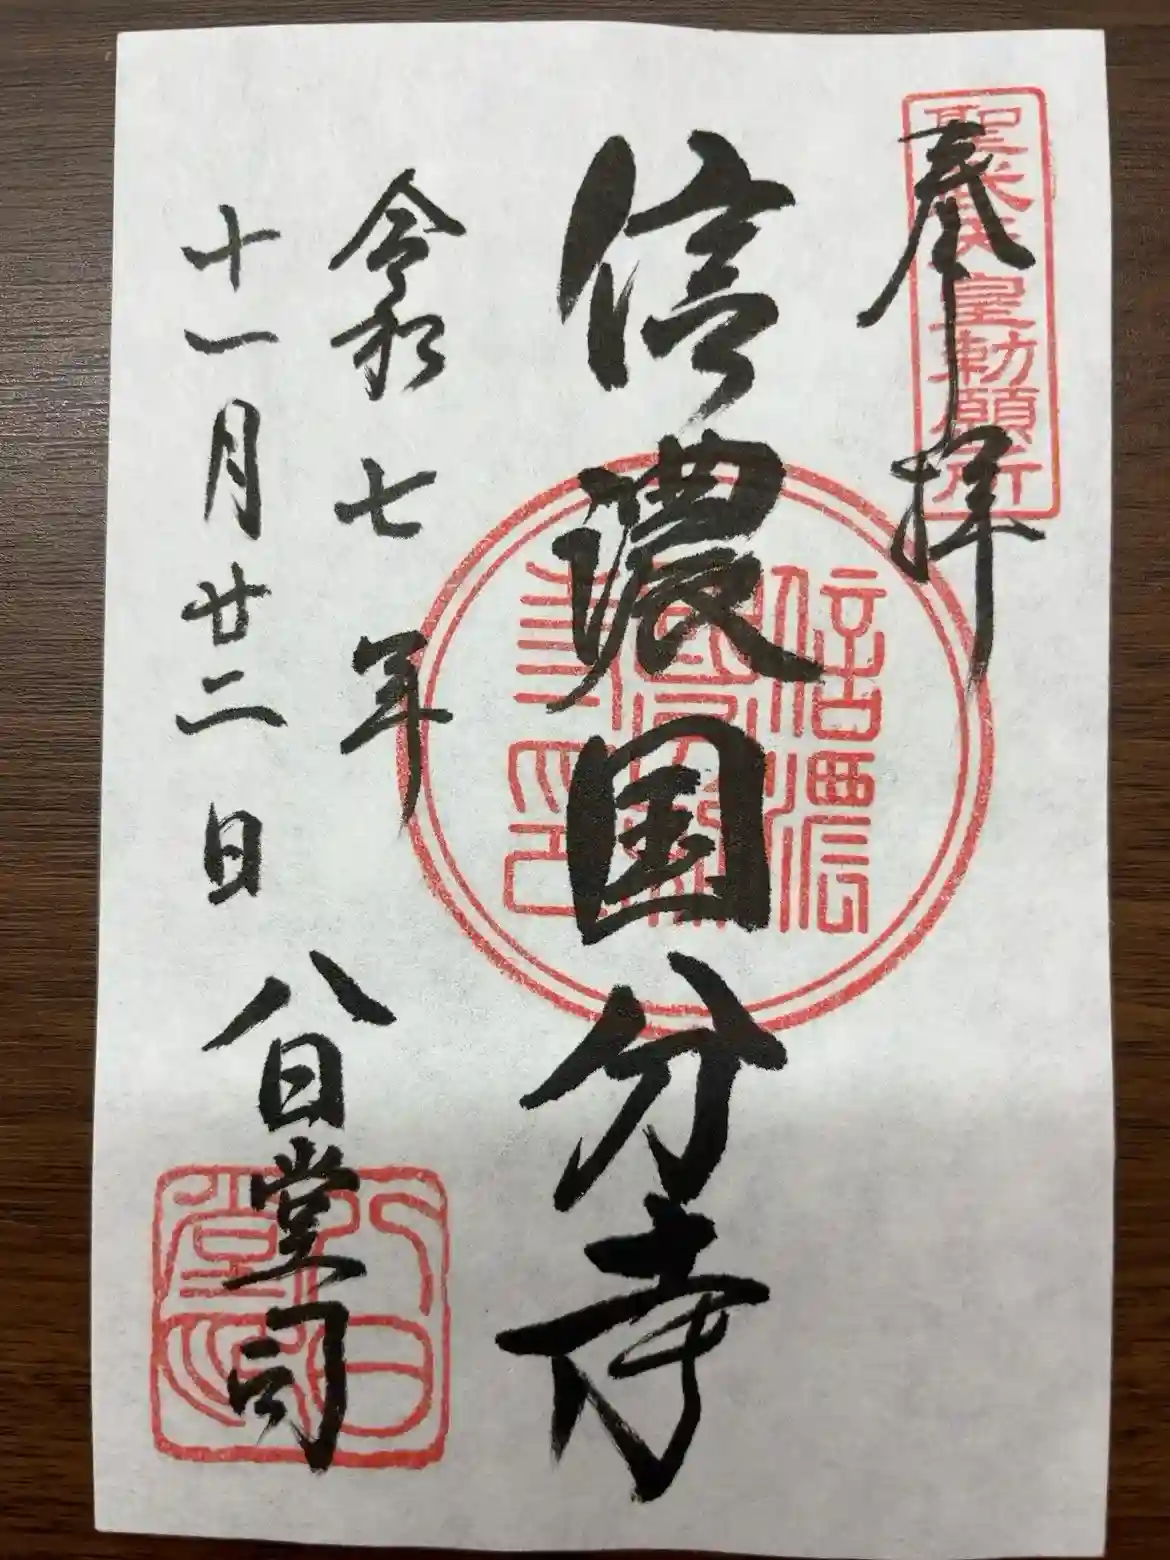 奉拝
聖武天皇勅願所
信濃国分寺
信濃国分寺印
令和七年
十一月廿二日
八日堂司
八日堂印